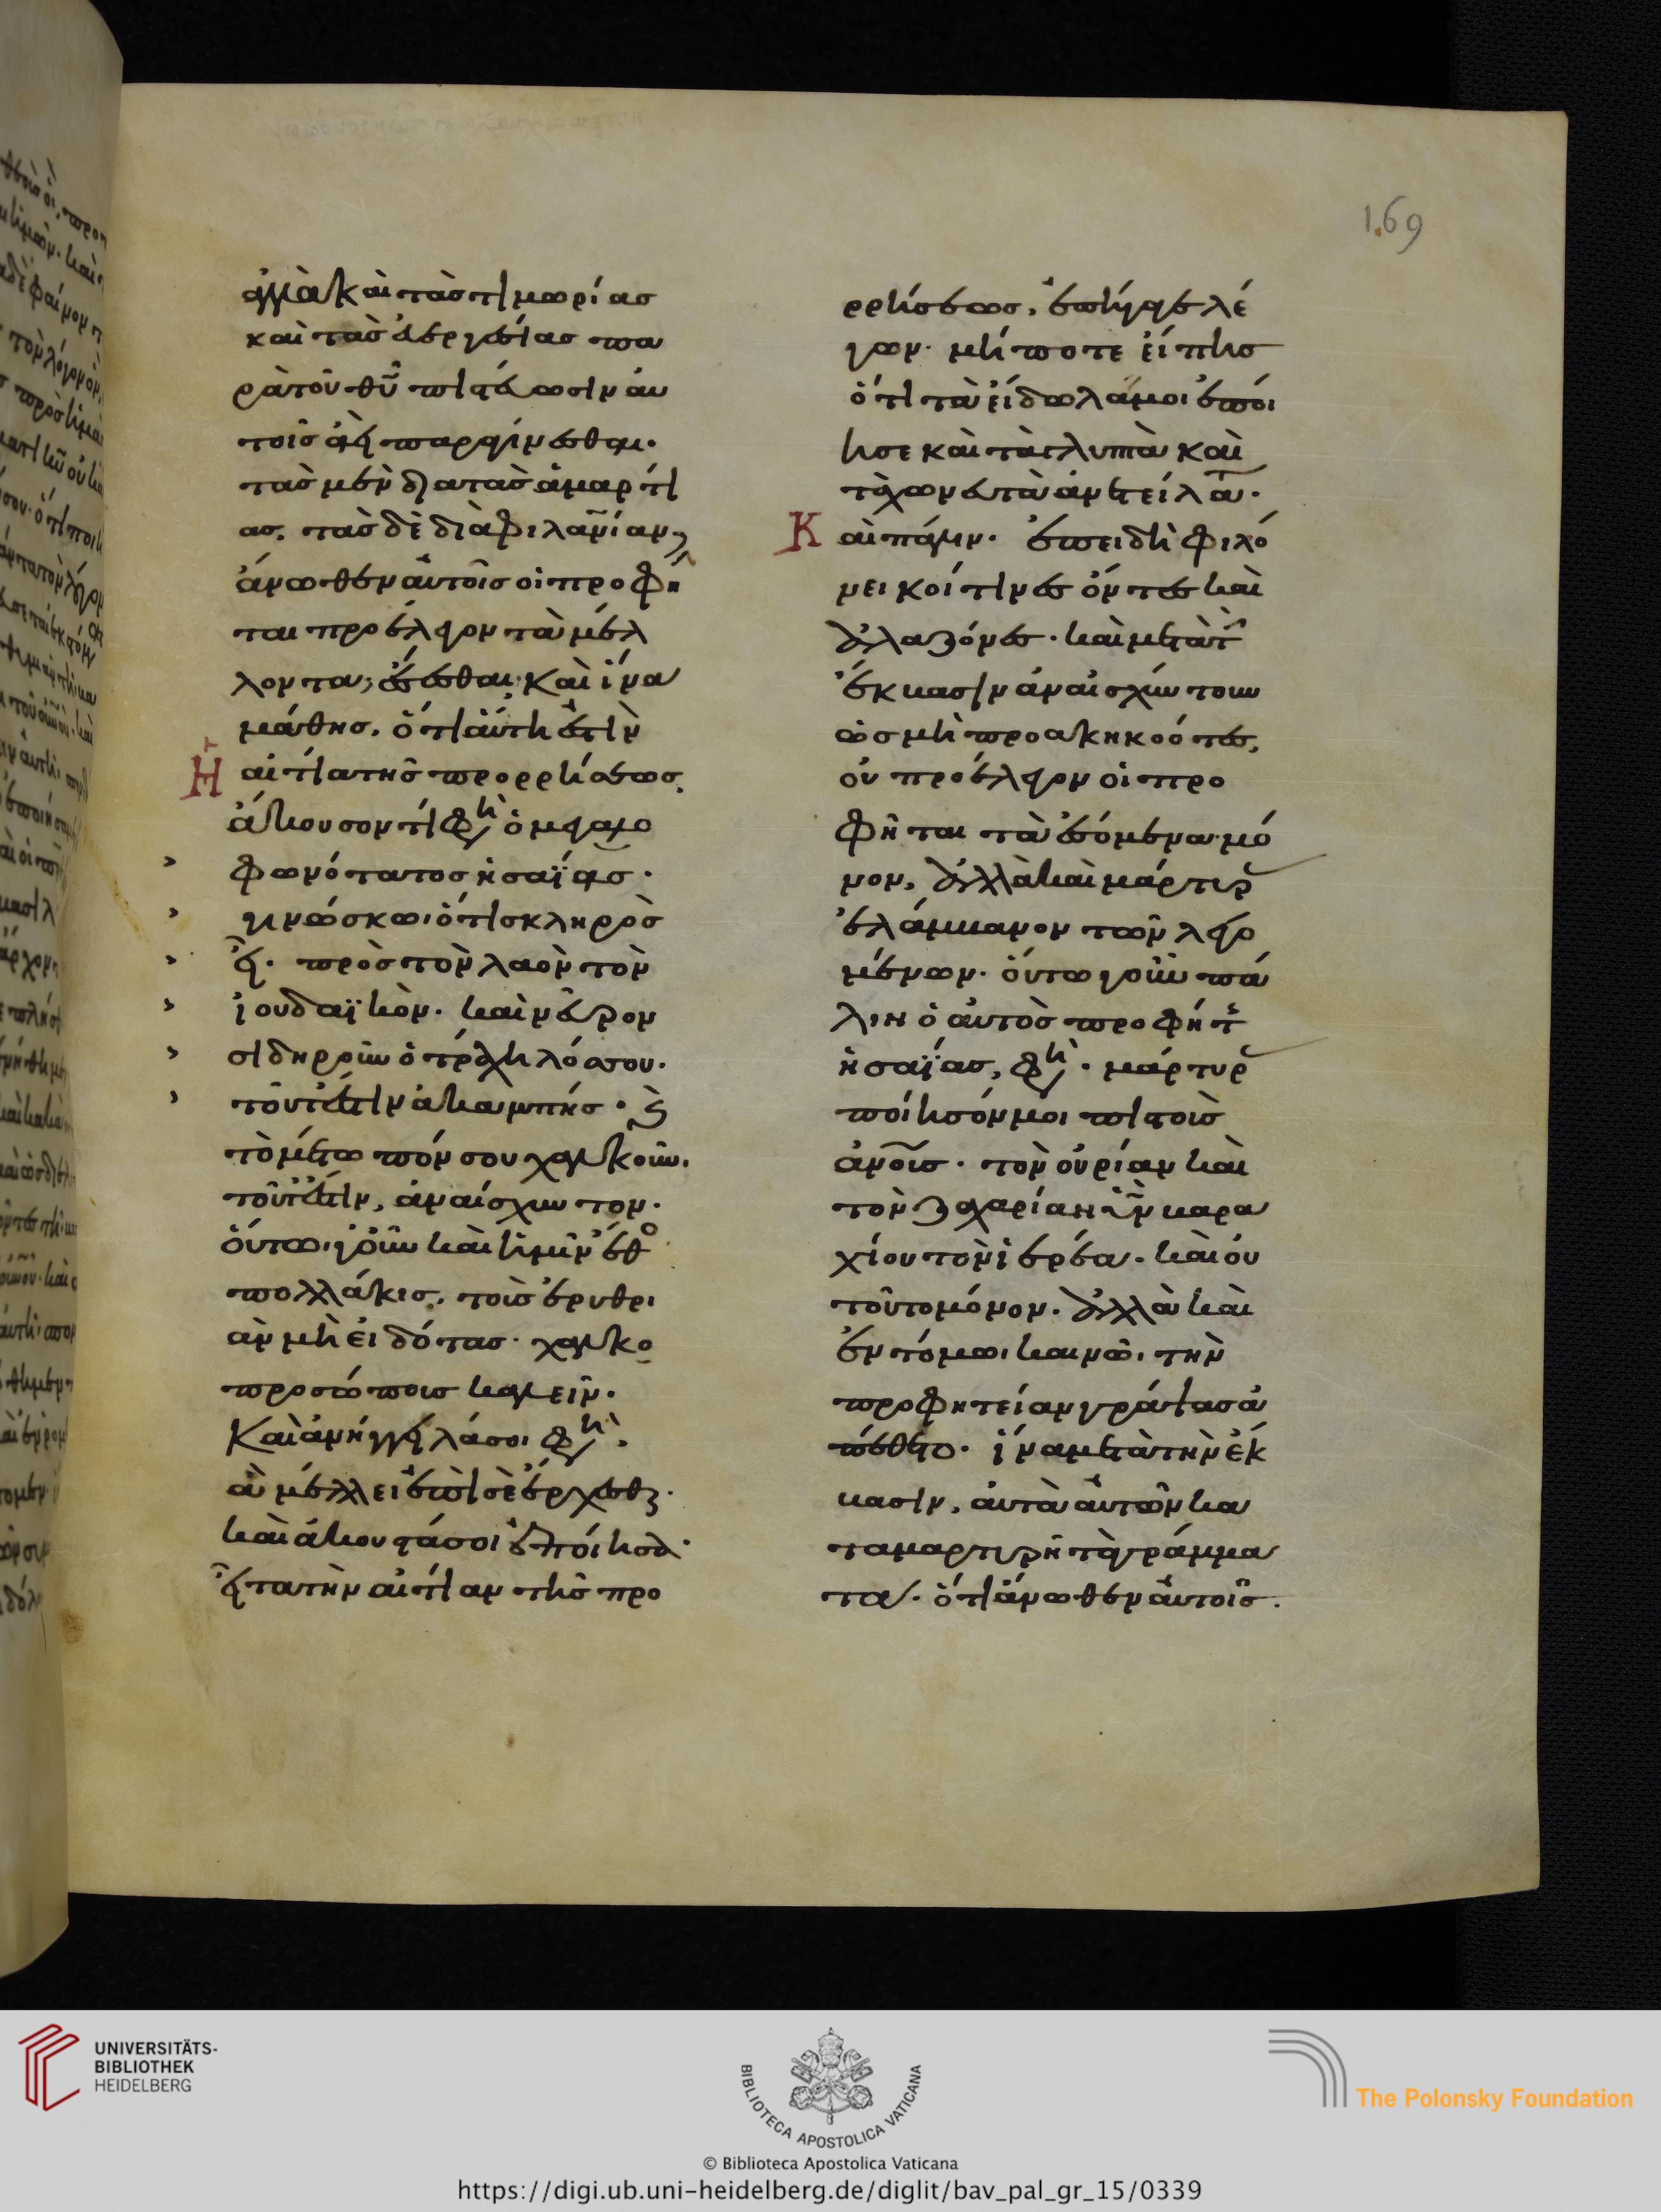 169
ἀλλὰ καὶ τὰς τιμωρίας
καὶ τὰς εὐεργεσίας πα
ρὰ τοῦ θῦ πιστεύωσιν αὐ
τοῖς ἀεὶ παραγίνεσθαι·
τὰς μὲν δι ατὰσ ἁμαρτί
ας, τὰς δὲ διὰ φιλανίαν,
ἄνωθεν αὐτοῖς οἱ προφῆ
ται προέλεγον τὰ μέλ
λοντα, ἔσεσθαι· καὶ ἵνα
μάθης, ὅτι αὕτη ἐστὶν
Ἡ αἰτία τῆς προρρήσεως,
ἄκουσον τί φη ὁ μεγαλο
φωνότατος ἡσαΐας·
γινώσκωι ὅτι σκληρὸς
εἶ· πρὸς τὸν λαὸν τὸν
ἰουδαϊκὸν· καὶ νεῦρον
σιδηροῦν ὁ τράχηλός σου·
τοῦτέστιν ἀκαμπής· ϗ
τὸ μέτωπόν σου χαλκοῦν·
τοῦτέστιν, ἀναίσχυντον·
οὕτωι γοῦν καὶ ἡμῖν ἔθο
πολλάκις, τοὺς ἐρυθρι
ᾶν μὴ εἰδότας· χαλκο
προσώπους καλεῖν·
Καὶ ἀνήγγειλά σοι φη·
ἃ μέλλει ἐπὶ σὲ ἔρχεσθαι·
καὶ ἀκουστά σοι ἐποίησα·
εἶτα τὴν αἰτίαν τῆς προ
ρρήσεως, ἐπήγαγε λέ
γων· μήποτε εἴπης
ὅτι τὰ εἴδωλά μοι ἐποί
ησε καὶ τὰ γλυπτὰ καὶ
τὰ χωνευτὰ ἀνετείλατο·
Καὶ πάλιν· ἐπειδὴ φιλό
νεικοί τινες ὄντες καὶ
ἀλαζόνες· καὶ μετὰ τ
ἔκβασιν ἀναισχύντουν
ὡς μὴ προακηκοότες,
οὐ προέλεγον οἱ προ
φῆται τὰ ἐσόμενα μό
νον, ἀλλὰ καὶ μάρτυρ
ἐλάμβανον τῶν λεγο
μένων· οὕτω γοῦν πά
λιν ὁ αὐτὸς προφήτ
ἡσαΐας, φη· μάρτυρ
ποίησόν μοι πιστοὺς
ἀνους· τὸν οὐρίαν καὶ
τὸν ζαχαρίαν υἱὸν βαρα
χίου τὸν ἱερέα· καὶ οὐ
τοῦτο μόνον· ἀλλὰ καὶ
ἐν τόμωι καινῶι τὴν
προφητείαν γράψας ἀ
πέθετο· ἵνα μετὰ τὴν ἔκ
βασιν, αὐτὰ αὐτῶν κα
ταμαρτυρῆ τὰ γράμμα
τα· ὅτι ἄνωθεν αὐτοῖς·
UNIVERSITÄTS-
BIBLIOTHEK
HEIDELBERG
BIBLIOTECA APOSTOLICA VATICANA
The Polonsky Foundation
© Biblioteca Apostolica Vaticana
https://digi.ub.uni-heidelberg.de/diglit/bav_pal_gr_15/0339